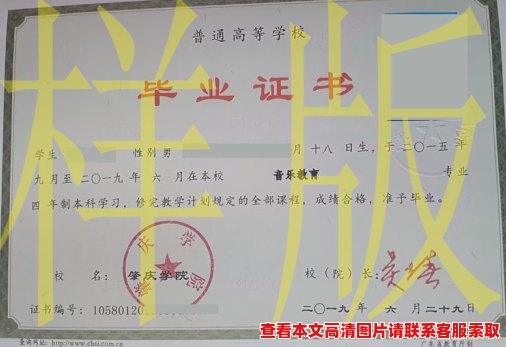 普通高等学校
毕业证书
样版
学生 性别 男 月十八日生，于二〇一五年
九月至二〇一九年 六 月在本校 音乐教育 专业
四年制本科学习，修完教学计划规定的全部课程，成绩合格，准予毕业。
肇庆学院
校 名： 肇庆学院 校（院）长：
证书编号：10580120 二〇一九年 六 月二十九日
查看本文高清图片请联系客服索取
查询网址：http://www.chsi.com.cn 广东省教育厅制